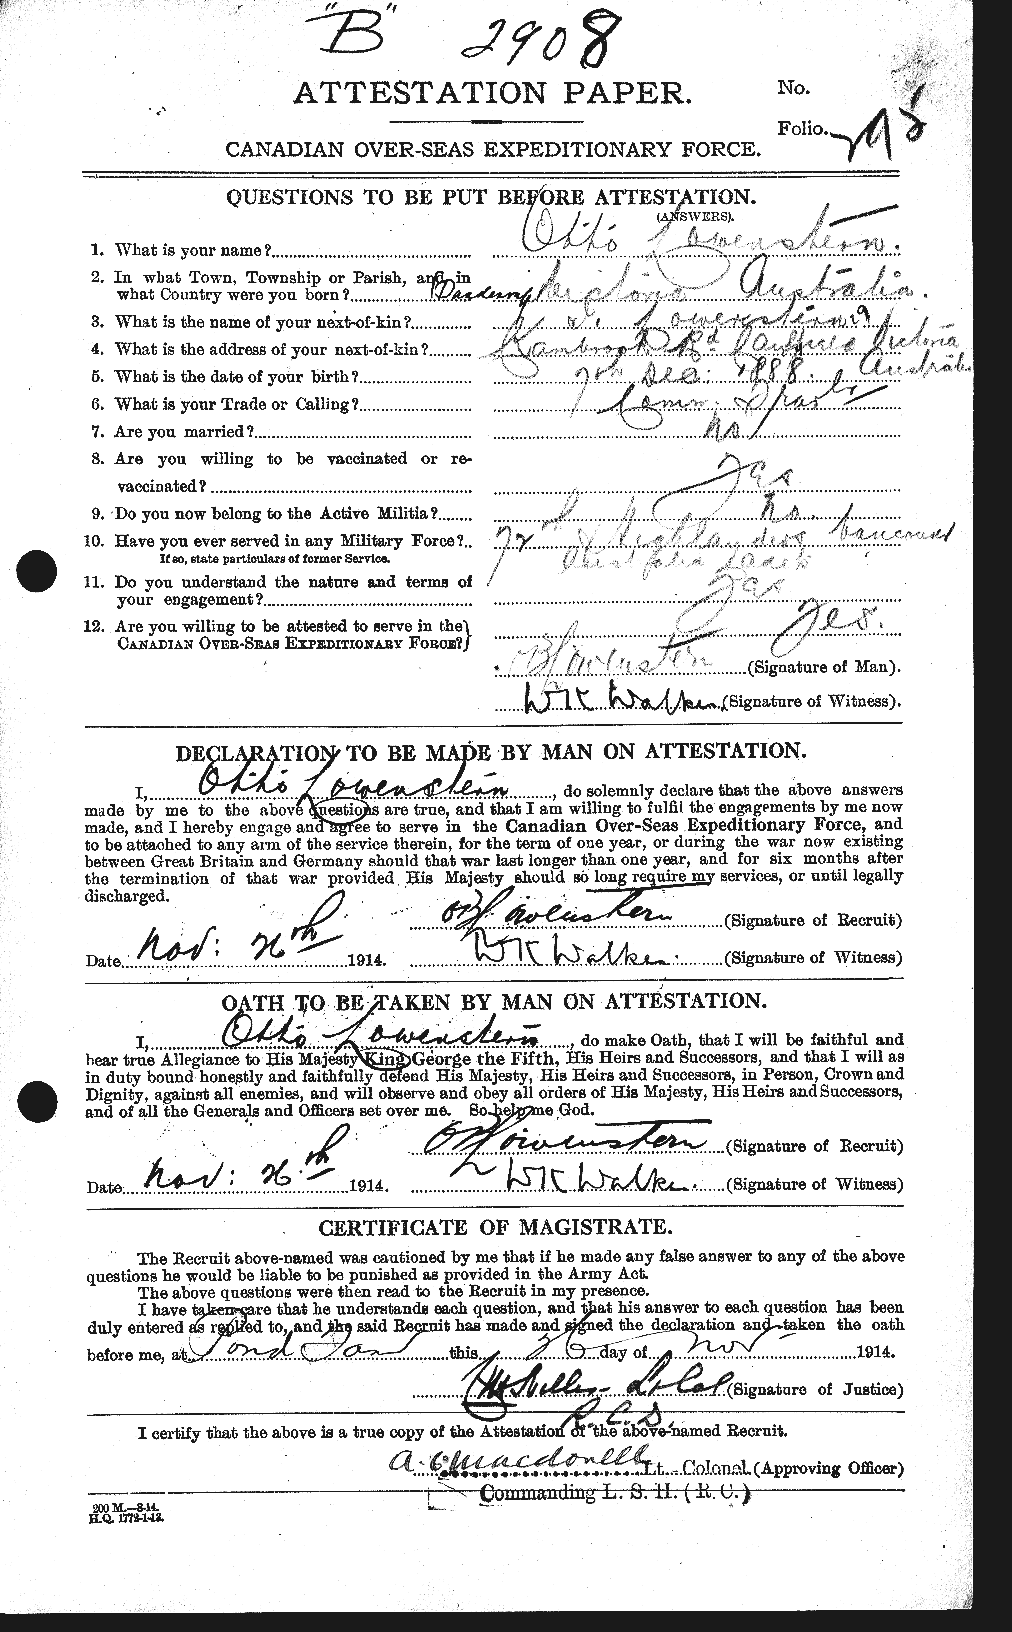 "B" 2908
ATTESTATION PAPER.
No.
Folio.
CANADIAN OVER-SEAS EXPEDITIONARY FORCE.
QUESTIONS TO BE PUT BEFORE ATTESTATION.
(ANSWERS).
1. What is your name? Otto Lowenstern.
2. In what Town, Township or Parish, and in
what Country were you born? Victoria Australia.
3. What is the name of your next-of-kin? Lowenstern
4. What is the address of your next-of-kin? Kambrook Rd Caulfield Victoria
Australia
5. What is the date of your birth? 7th Dec: 1888.
6. What is your Trade or Calling? Comm.
7. Are you married? No
8. Are you willing to be vaccinated or re-
vaccinated? Yes
9. Do you now belong to the Active Militia? No.
10. Have you ever served in any Military Force? 72nd Highlanders
If so, state particulars of former Service. Australian
11. Do you understand the nature and terms of
your engagement? Yes
12. Are you willing to be attested to serve in the
CANADIAN OVER-SEAS EXPEDITIONARY FORCE? Yes.
O Lowenstern (Signature of Man).
WK Walker (Signature of Witness).
DECLARATION TO BE MADE BY MAN ON ATTESTATION.
I, Otto Lowenstern, do solemnly declare that the above answers
made by me to the above questions are true, and that I am willing to fulfil the engagements by me now
made, and I hereby engage and agree to serve in the Canadian Over-Seas Expeditionary Force, and
to be attached to any arm of the service therein, for the term of one year, or during the war now existing
between Great Britain and Germany should that war last longer than one year, and for six months after
the termination of that war provided His Majesty should so long require my services, or until legally
discharged.
O Lowenstern (Signature of Recruit)
Date Nov: 26th 1914. WK Walker. (Signature of Witness)
OATH TO BE TAKEN BY MAN ON ATTESTATION.
I, Otto Lowenstern, do make Oath, that I will be faithful and
bear true Allegiance to His Majesty King George the Fifth, His Heirs and Successors, and that I will as
in duty bound honestly and faithfully defend His Majesty, His Heirs and Successors, in Person, Crown and
Dignity, against all enemies, and will observe and obey all orders of His Majesty, His Heirs and Successors,
and of all the Generals and Officers set over me. So help me God.
O Lowenstern (Signature of Recruit)
Date Nov: 26th 1914. WK Walker. (Signature of Witness)
CERTIFICATE OF MAGISTRATE.
The Recruit above-named was cautioned by me that if he made any false answer to any of the above
questions he would be liable to be punished as provided in the Army Act.
The above questions were then read to the Recruit in my presence.
I have taken care that he understands each question, and that his answer to each question has been
duly entered as replied to, and the said Recruit has made and signed the declaration and taken the oath
before me, at Pond Farm this 26 day of Nov 1914.
Lt Col (Signature of Justice)
R.C.D.
I certify that the above is a true copy of the Attestation of the above-named Recruit.
A.C. Macdonell Lt.-Colonel (Approving Officer)
Commanding L. S. H. (R.C.)
200 M.—8-14.
H.Q. 1772-1-13.